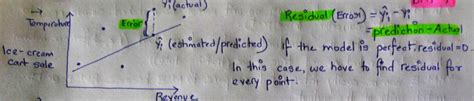 yi(actual)
Temperature
Error
Residual (Error) = ŷi - yi
= prediction - Actual
ŷi (estimated/predicted)
if the model is perfect. residual = 0
Ice-cream
cart sale
In this case, we have to find residual for
every point.
Revenue